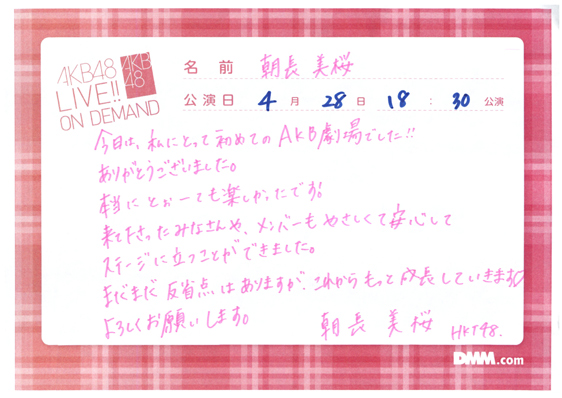 AKB48
LIVE!!
ON DEMAND
AKB
48
名前 朝長 美桜
公演日 4月28日 18:30公演
今日は、私にとって初めてのAKB劇場でした!!
ありがとうございました。
本当にとぉーても楽しかったです!
来て下さったみなさんや、メンバーもやさしくて安心して
ステージに立つことができました。
まだまだ反省点はありますが、これからもっと成長していきます
よろしくお願いします。
朝長 美桜 HKT48.
DMM.com